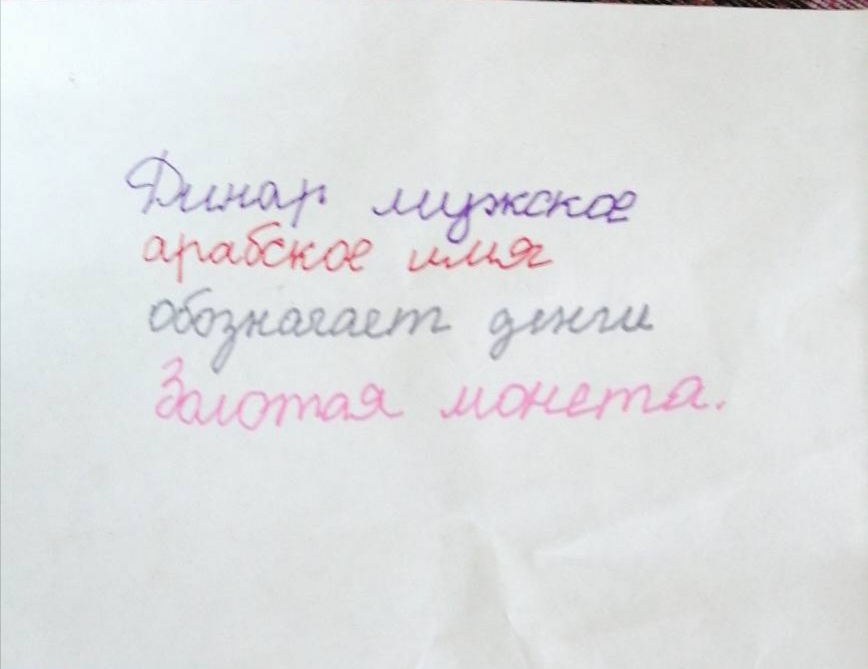 Динар мужское
арабское имя
обозначает денги
Золотая монета.